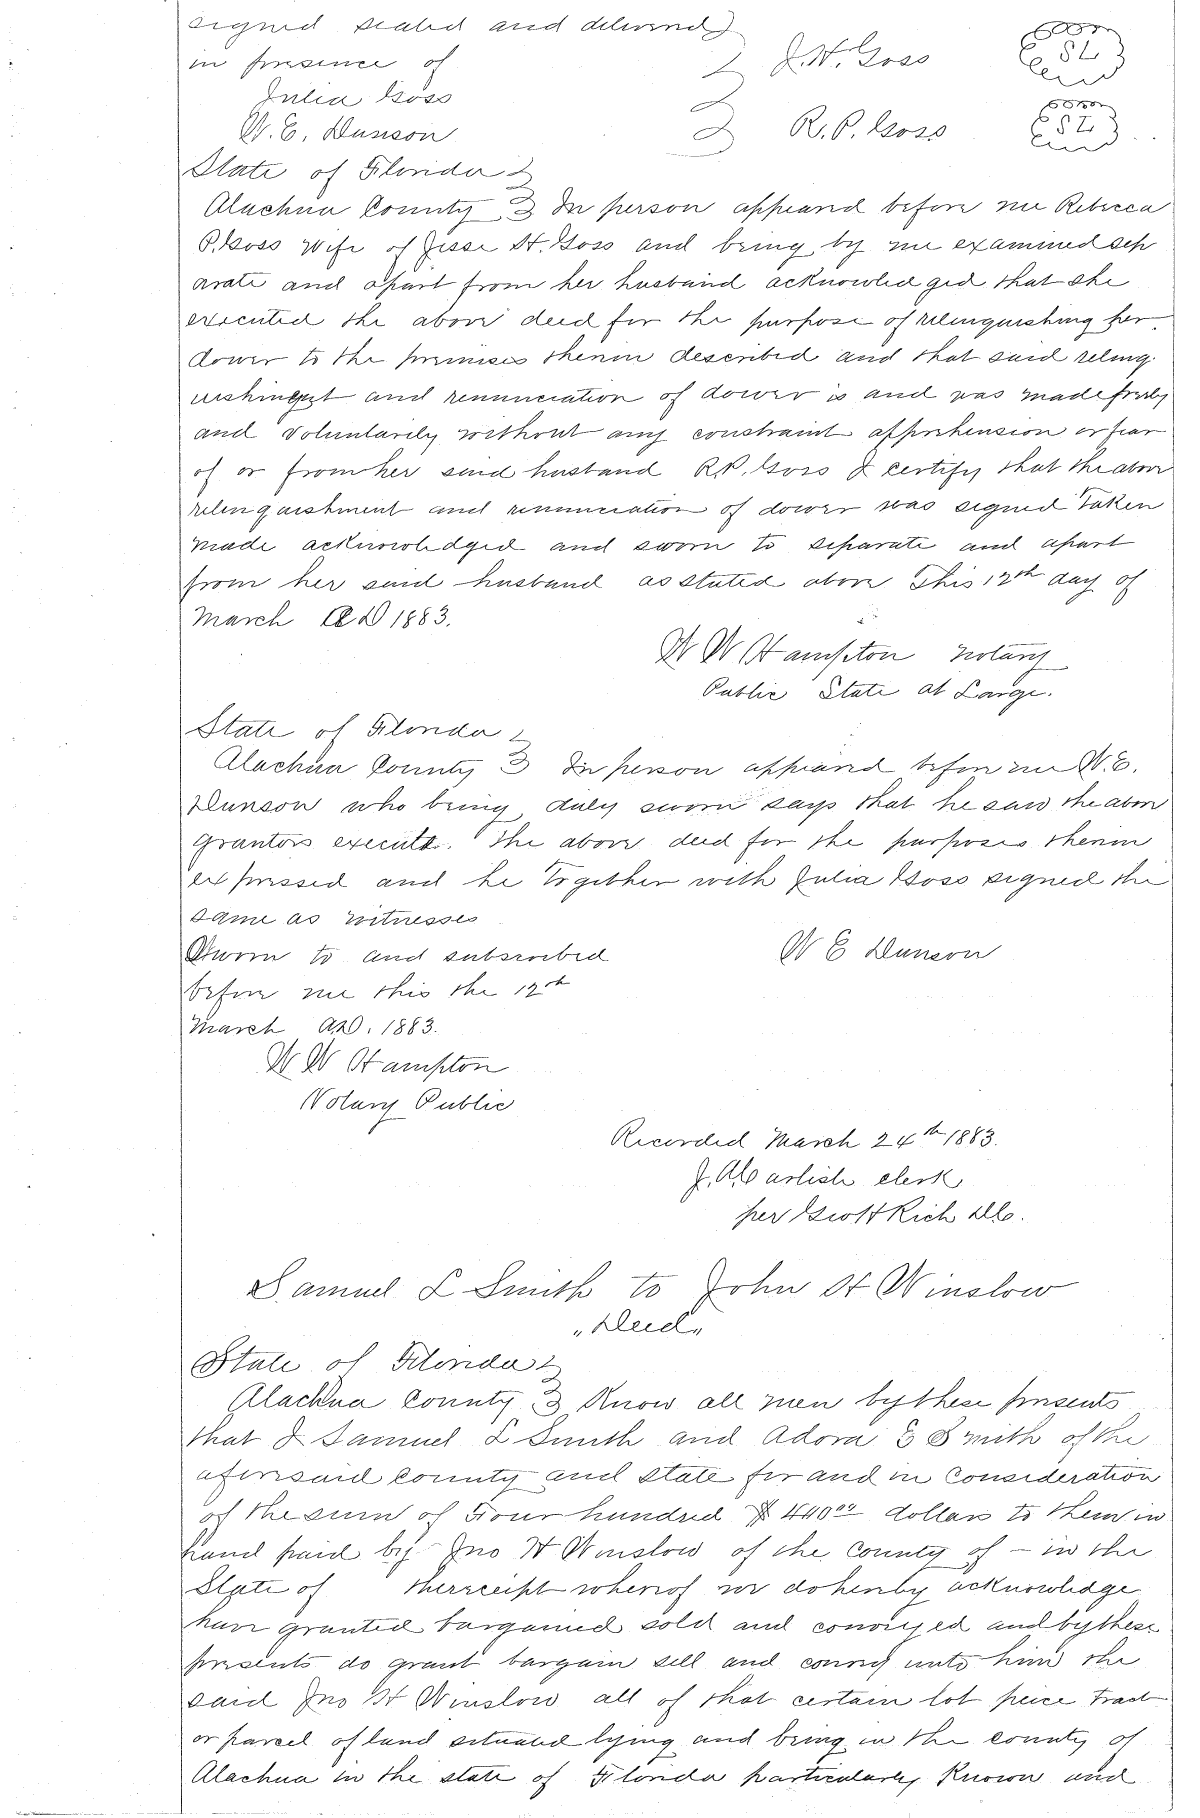 signed sealed and delivered
in presence of J. H. Goss LS
Julia Goss
W. E. Dunson R. P. Goss LS
State of Florida
Alachua County In person appeared before me Rebecca
P. Goss wife of Jesse H. Goss and being by me examined sep
arate and apart from her husband acknowledged that she
executed the above deed for the purpose of relinquishing her
dower to the premises therein described and that said relinq
uishment and renunciation of dower is and was made freely
and voluntarily without any constraint apprehension or fear
of or from her said husband R.P. Goss I certify that the above
relinquishment and renunciation of dower was signed taken
made acknowledged and sworn to separate and apart
from her said husband as stated above This 12th day of
March AD 1883.
W W Hampton Notary
Public State at Large.
State of Florida
Alachua County In person appeared before me W. E.
Dunson who being duly sworn says that he saw the above
grantors execute the above deed for the purposes therein
expressed and he together with Julia Goss signed the
same as witnesses
Sworn to and subscribed W E Dunson
before me this the 12th
March A.D. 1883.
W W Hampton
Notary Public
Recorded March 24th 1883.
J. A. Carlisle clerk
per Rich DC.
Samuel L Smith to John H Winslow
"Deed"
State of Florida
Alachua County Know all men by these presents
that I Samuel L Smith and Adora E Smith of the
aforesaid county and state for and in consideration
of the sum of Four hundred $ 440.00 dollars to them in
hand paid by Jno H Winslow of the county of – in the
State of the receipt whereof we do hereby acknowledge
have granted bargained sold and conveyed and by these
presents do grant bargain sell and convey unto him the
said Jno H Winslow all of that certain lot peice tract
or parcel of land situated lying and being in the county of
Alachua in the state of Florida particularly known and